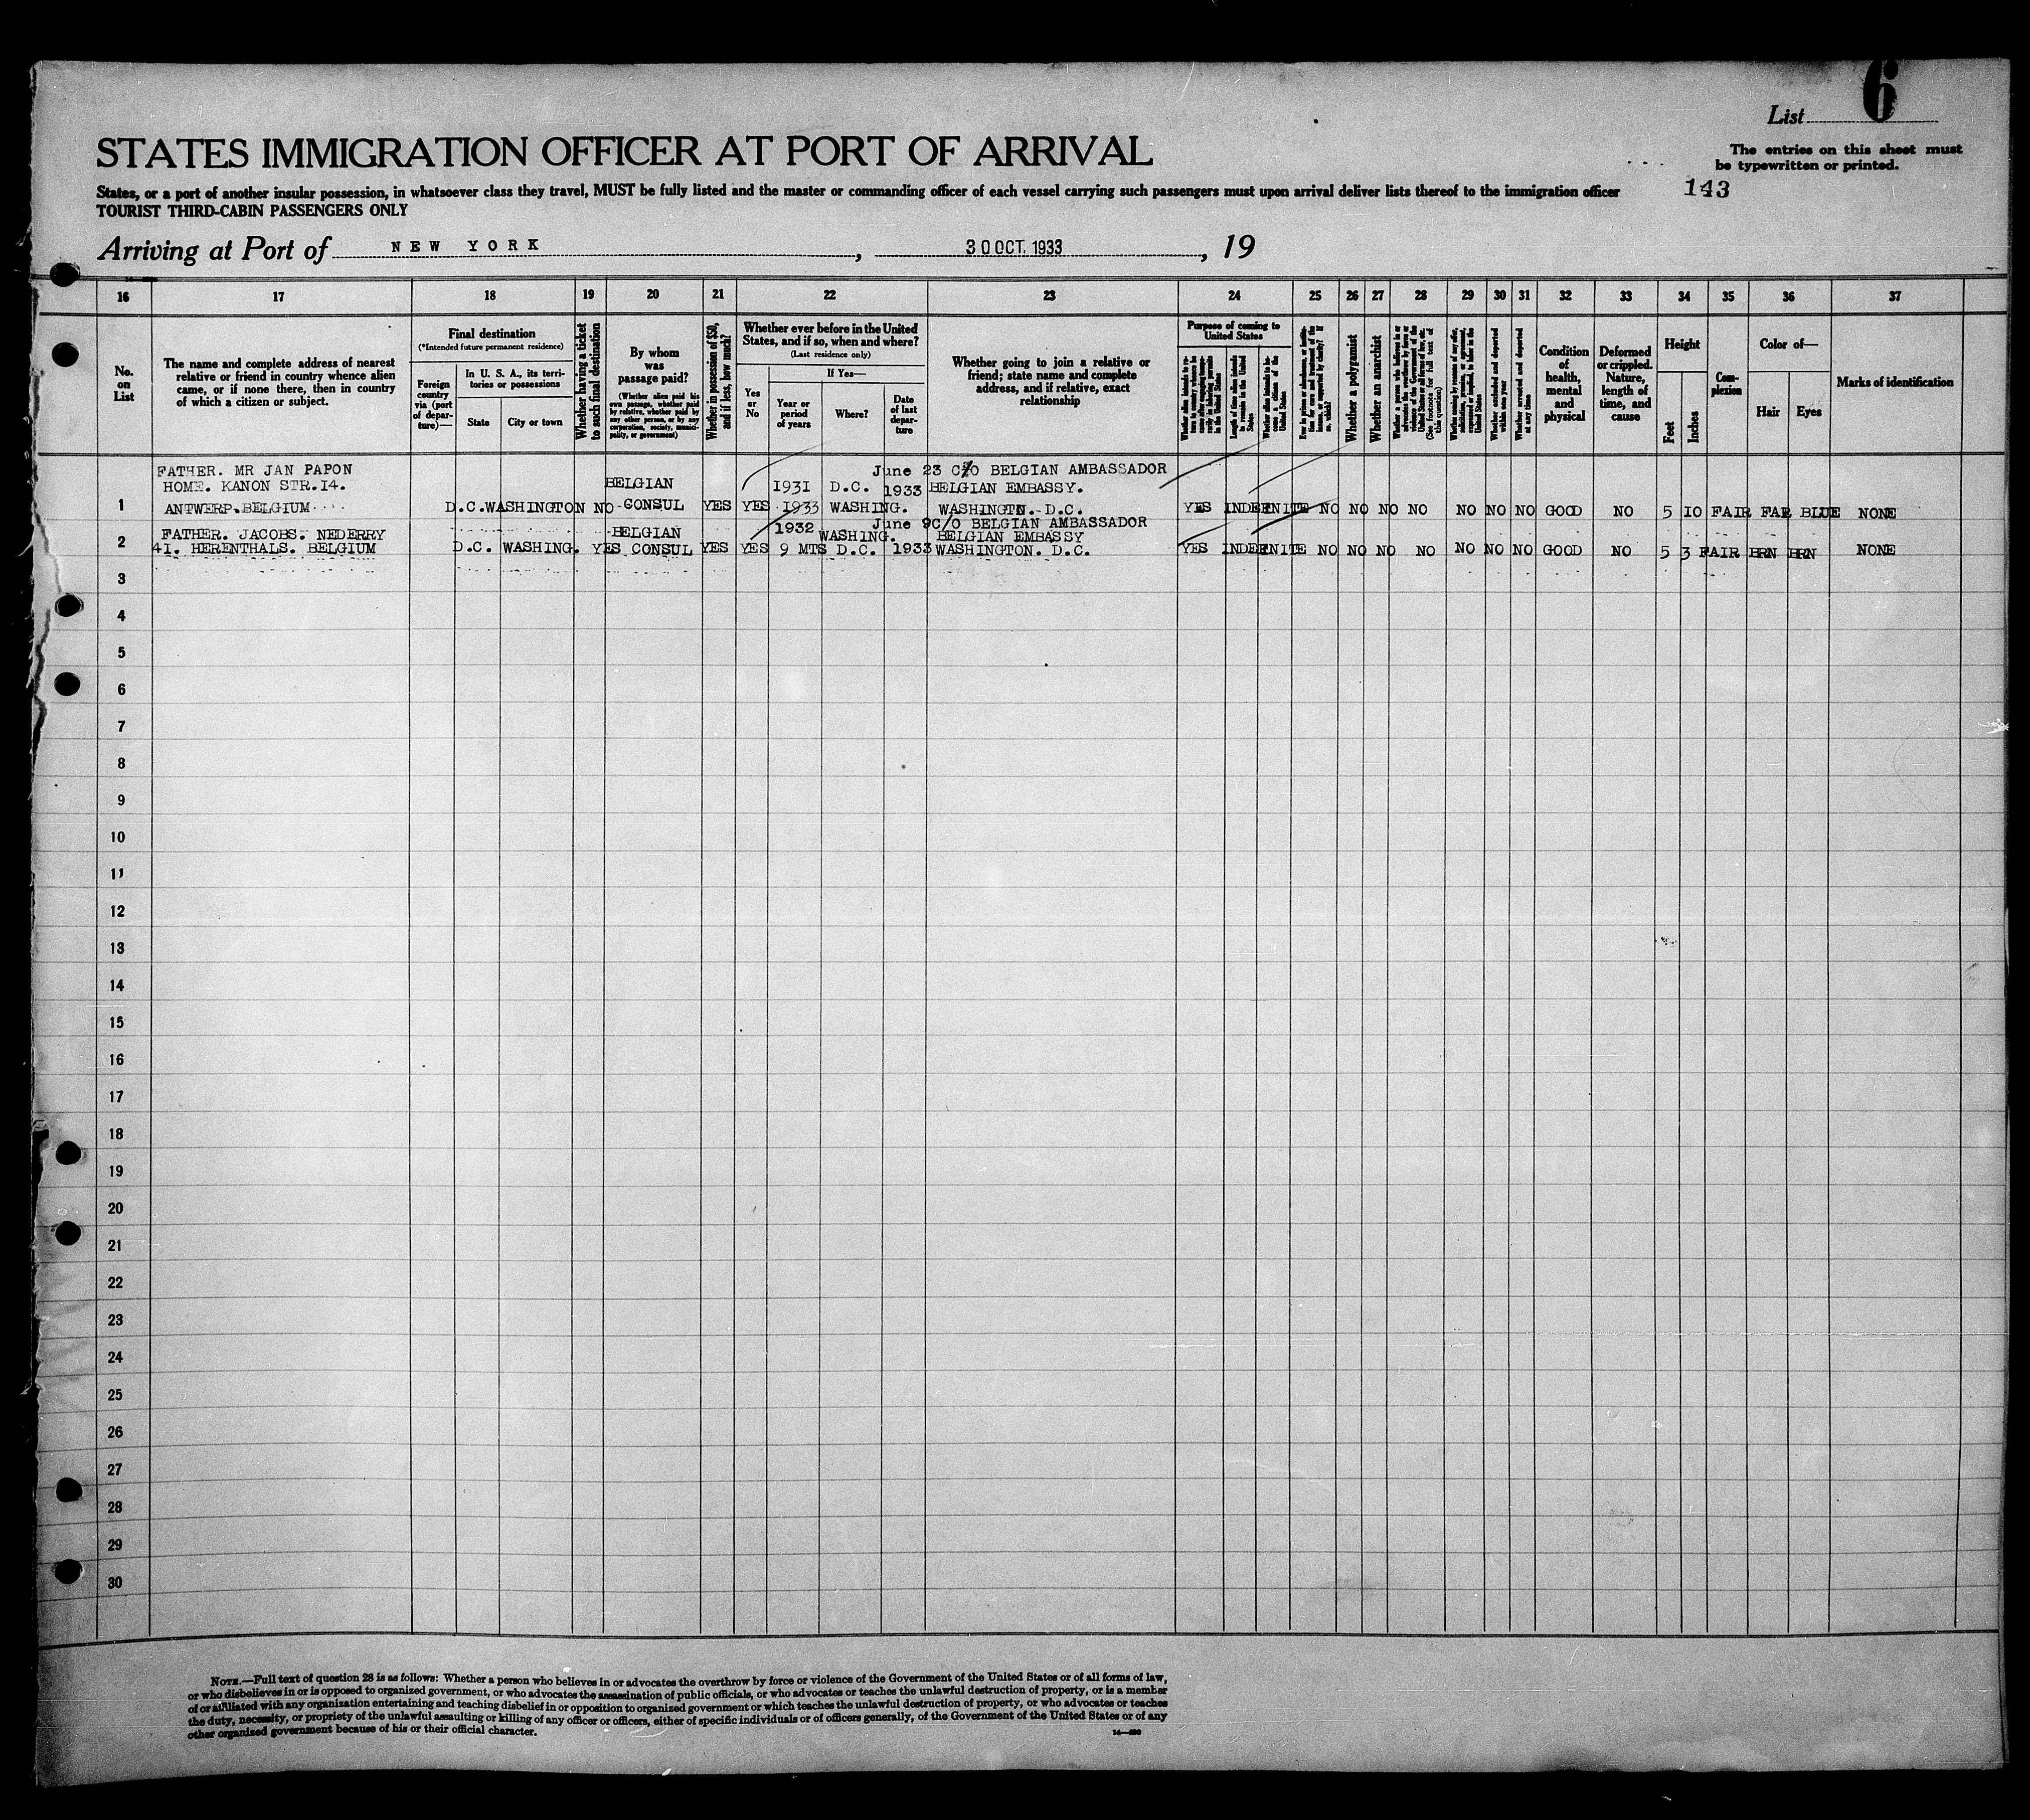 List 6
STATES IMMIGRATION OFFICER AT PORT OF ARRIVAL
The entries on this sheet must
be typewritten or printed.
States, or a port of another insular possession, in whatsoever class they travel, MUST be fully listed and the master or commanding officer of each vessel carrying such passengers must upon arrival deliver lists thereof to the immigration officer
143
TOURIST THIRD-CABIN PASSENGERS ONLY
Arriving at Port of NEW YORK, 30 OCT. 1933, 19
16 17 18 19 20 21 22 23 24 25 26 27 28 29 30 31 32 33 34 35 36 37
No.
on
List
The name and complete address of nearest
relative or friend in country whence alien
came, or if none there, then in country
of which a citizen or subject.
Final destination
(*Intended future permanent residence)
Foreign
country
via (port
of depar-
ture)—
In U. S. A., its terri-
tories or possessions
State
City or town
Whether having a ticket
to such final destination
By whom
was
passage paid?
(Whether alien paid his
own passage, whether paid
by relative, whether paid by
any other person, or by any
corporation, society, munici-
pality, or government)
Whether in possession of $50,
and if less, how much?
Whether ever before in the United
States, and if so, when and where?
(Last residence only)
Yes
or
No
If Yes—
Year or
period
of years
Where?
Date
of last
depar-
ture
Whether going to join a relative or
friend; state name and complete
address, and if relative, exact
relationship
Purpose of coming to
United States
Whether a polygamist
Whether an anarchist
(See footnote for full text of
this question)
Whether excluded and deported
within one year
Whether arrested and deported
at any time
Condition
of
health,
mental
and
physical
Deformed
or crippled.
Nature,
length of
time, and
cause
Height
Feet
Inches
Com-
plexion
Color of—
Hair
Eyes
Marks of identification
FATHER. MR JAN PAPON June 23 C/O BELGIAN AMBASSADOR
HOME. KANON STR.14. BELGIAN 1931 D.C. 1933 BELGIAN EMBASSY.
1 ANTWERP.BELGIUM D.C.WASHINGTON NO CONSUL YES YES 1933 WASHING. WASHINGTN. D.C. YES INDEFINITE NO NO NO NO NO NO NO GOOD NO 5 10 FAIR FAR BLUE NONE
FATHER. JACOBS. NEDERRY BELGIAN 1932 WASHING. June 9 C/O BELGIAN AMBASSADOR
BELGIAN EMBASSY
2 41. HERENTHALS. BELGIUM D.C. WASHING. YES CONSUL YES YES 9 MTS D.C. 1933 WASHINGTON. D.C. YES INDEFINITE NO NO NO NO NO NO NO GOOD NO 5 3 FAIR BRN BRN NONE
3
4
5
6
7
8
9
10
11
12
13
14
15
16
17
18
19
20
21
22
23
24
25
26
27
28
29
30
NOTE.—Full text of question 28 is as follows: Whether a person who believes in or advocates the overthrow by force or violence of the Government of the United States or of all forms of law,
or who disbelieves in or is opposed to organized government, or who advocates the assassination of public officials, or who advocates or teaches the unlawful destruction of property, or is a member
of or affiliated with any organization entertaining and teaching disbelief in or opposition to organized government or which teaches the unlawful destruction of property, or who advocates or teaches
the duty, necessity, or propriety of the unlawful assaulting or killing of any officer or officers, either of specific individuals or of officers generally, of the Government of the United States or of any
other organized government because of his or their official character.